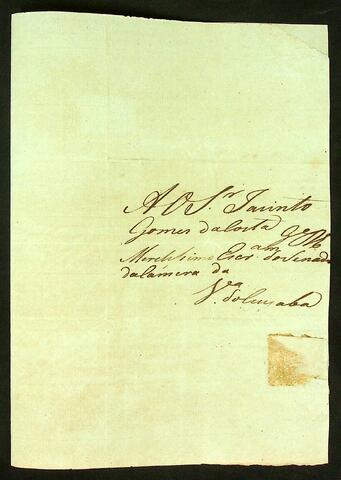 A O S.r Jacinto
Gomes da Costa
Meretissimo Escram do Senado
da Camera da
V.a do Cuyaba